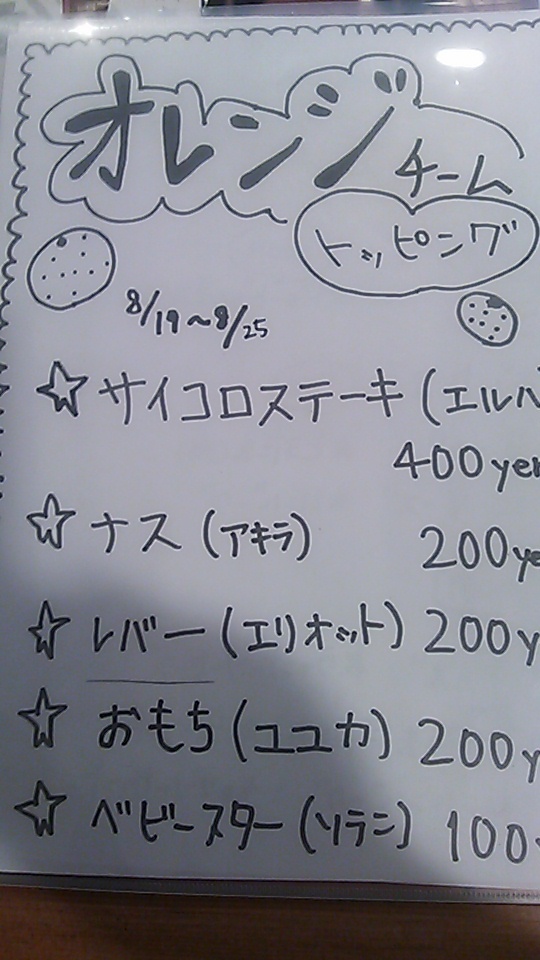 オレンジ
チーム
トッピング
8/19～8/25
☆サイコロステーキ(エルバ
400yen
☆ナス(アキラ) 200ye
☆レバー(エリオット) 200y
☆おもち(ユユカ) 200y
☆ベビースター(ソラニ) 100